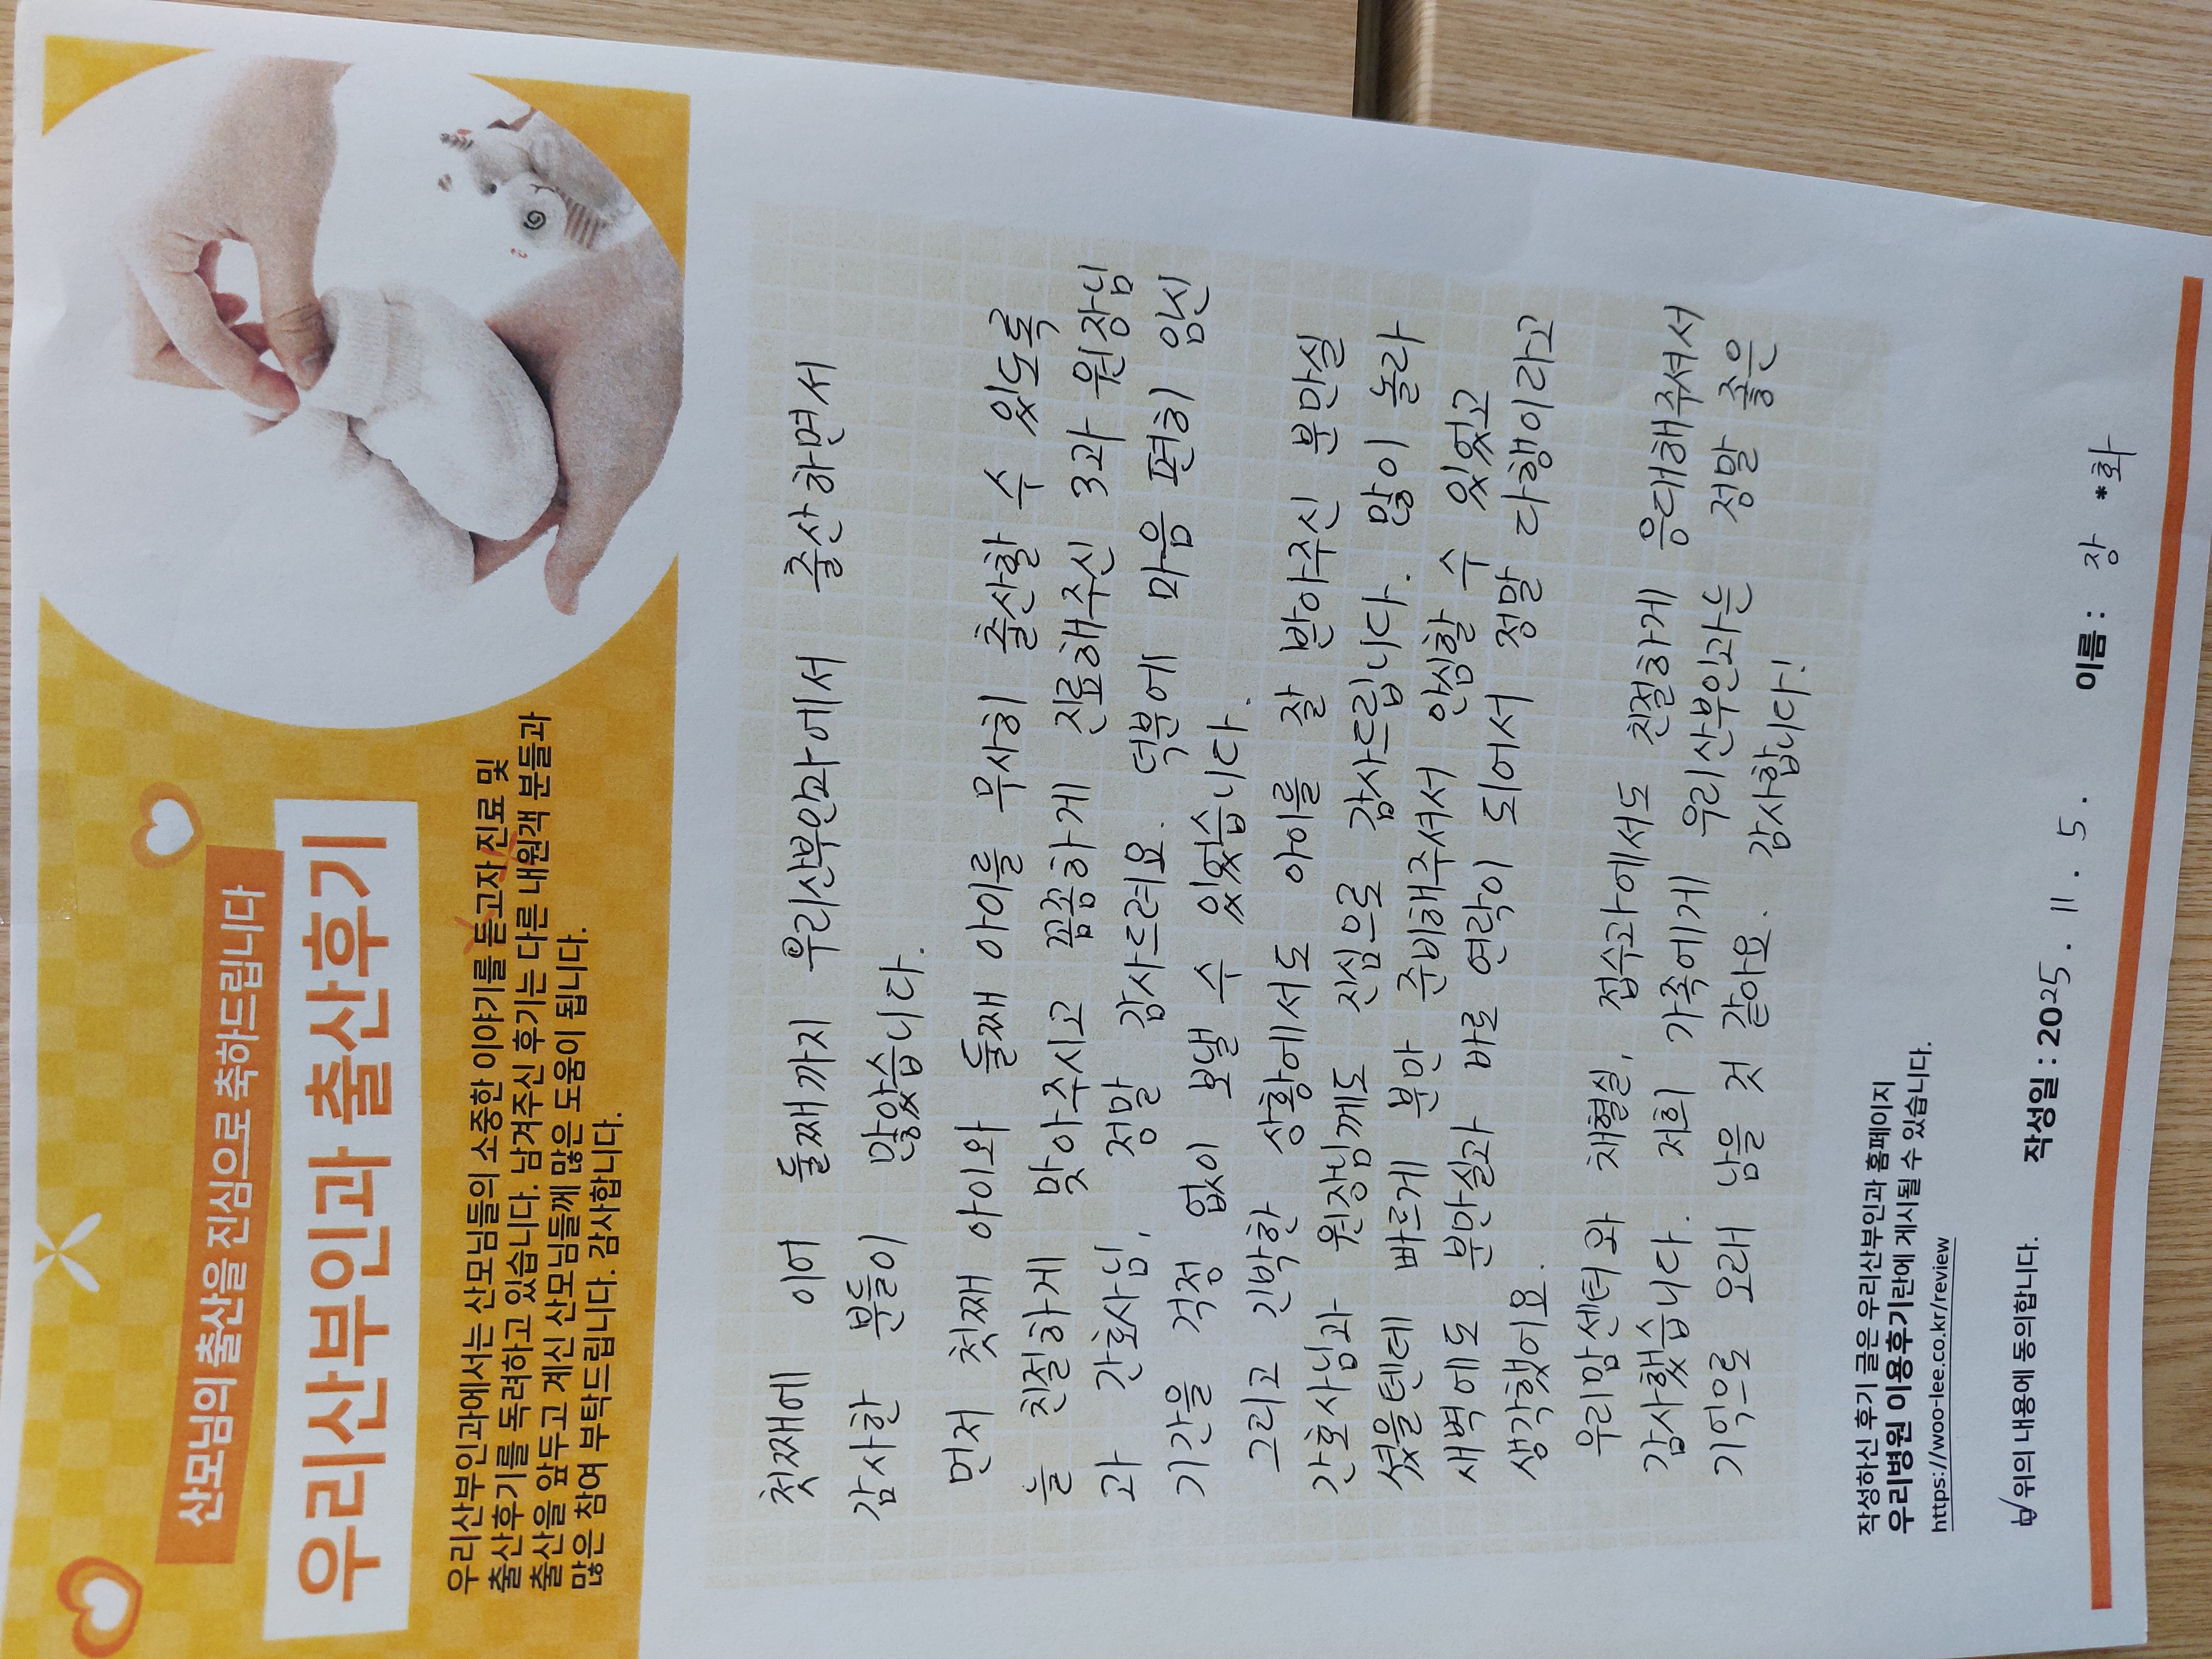 산모님의 출산을 진심으로 축하드립니다
우리산부인과 출산후기
우리산부인과에서는 산모님들의 소중한 이야기를 듣고자 진료 및
출산후기를 독려하고 있습니다. 남겨주신 후기는 다른 내원객 분들과
출산을 앞두고 계신 산모님들께 많은 도움이 됩니다.
많은 참여 부탁드립니다. 감사합니다.
첫째에 이어 둘째까지 우리산부인과에서 출산하면서
감사한 분들이 많았습니다.
먼저 첫째 아이와 둘째 아이를 무사히 출산할 수 있도록
늘 친절하게 맞아주시고 꼼꼼하게 진료해주신 3과 원장님
과 간호사님, 정말 감사드려요. 덕분에 마음 편히 임신
기간을 걱정 없이 보낼 수 있었습니다.
그리고 긴박한 상황에서도 아이를 잘 받아주신 분만실
간호사님과 원장님께도 진심으로 감사드립니다. 많이 놀라
셨을텐데 빠르게 분만 준비해주셔서 안심할 수 있었고
새벽에도 분만실과 바로 연락이 되어서 정말 다행이라고
생각했어요.
우리맘센터와 채혈실, 접수과에서도 친절하게 응대해주셔서
감사했습니다. 저희 가족에게 우리산부인과는 정말 좋은
기억으로 오래 남을 것 같아요. 감사합니다!
작성하신 후기 글은 우리산부인과 홈페이지
우리병원 이용후기란에 게시될 수 있습니다.
https://woo-lee.co.kr/review
위의 내용에 동의합니다. 작성일 : 2025. 11. 5. 이름 : 장*화